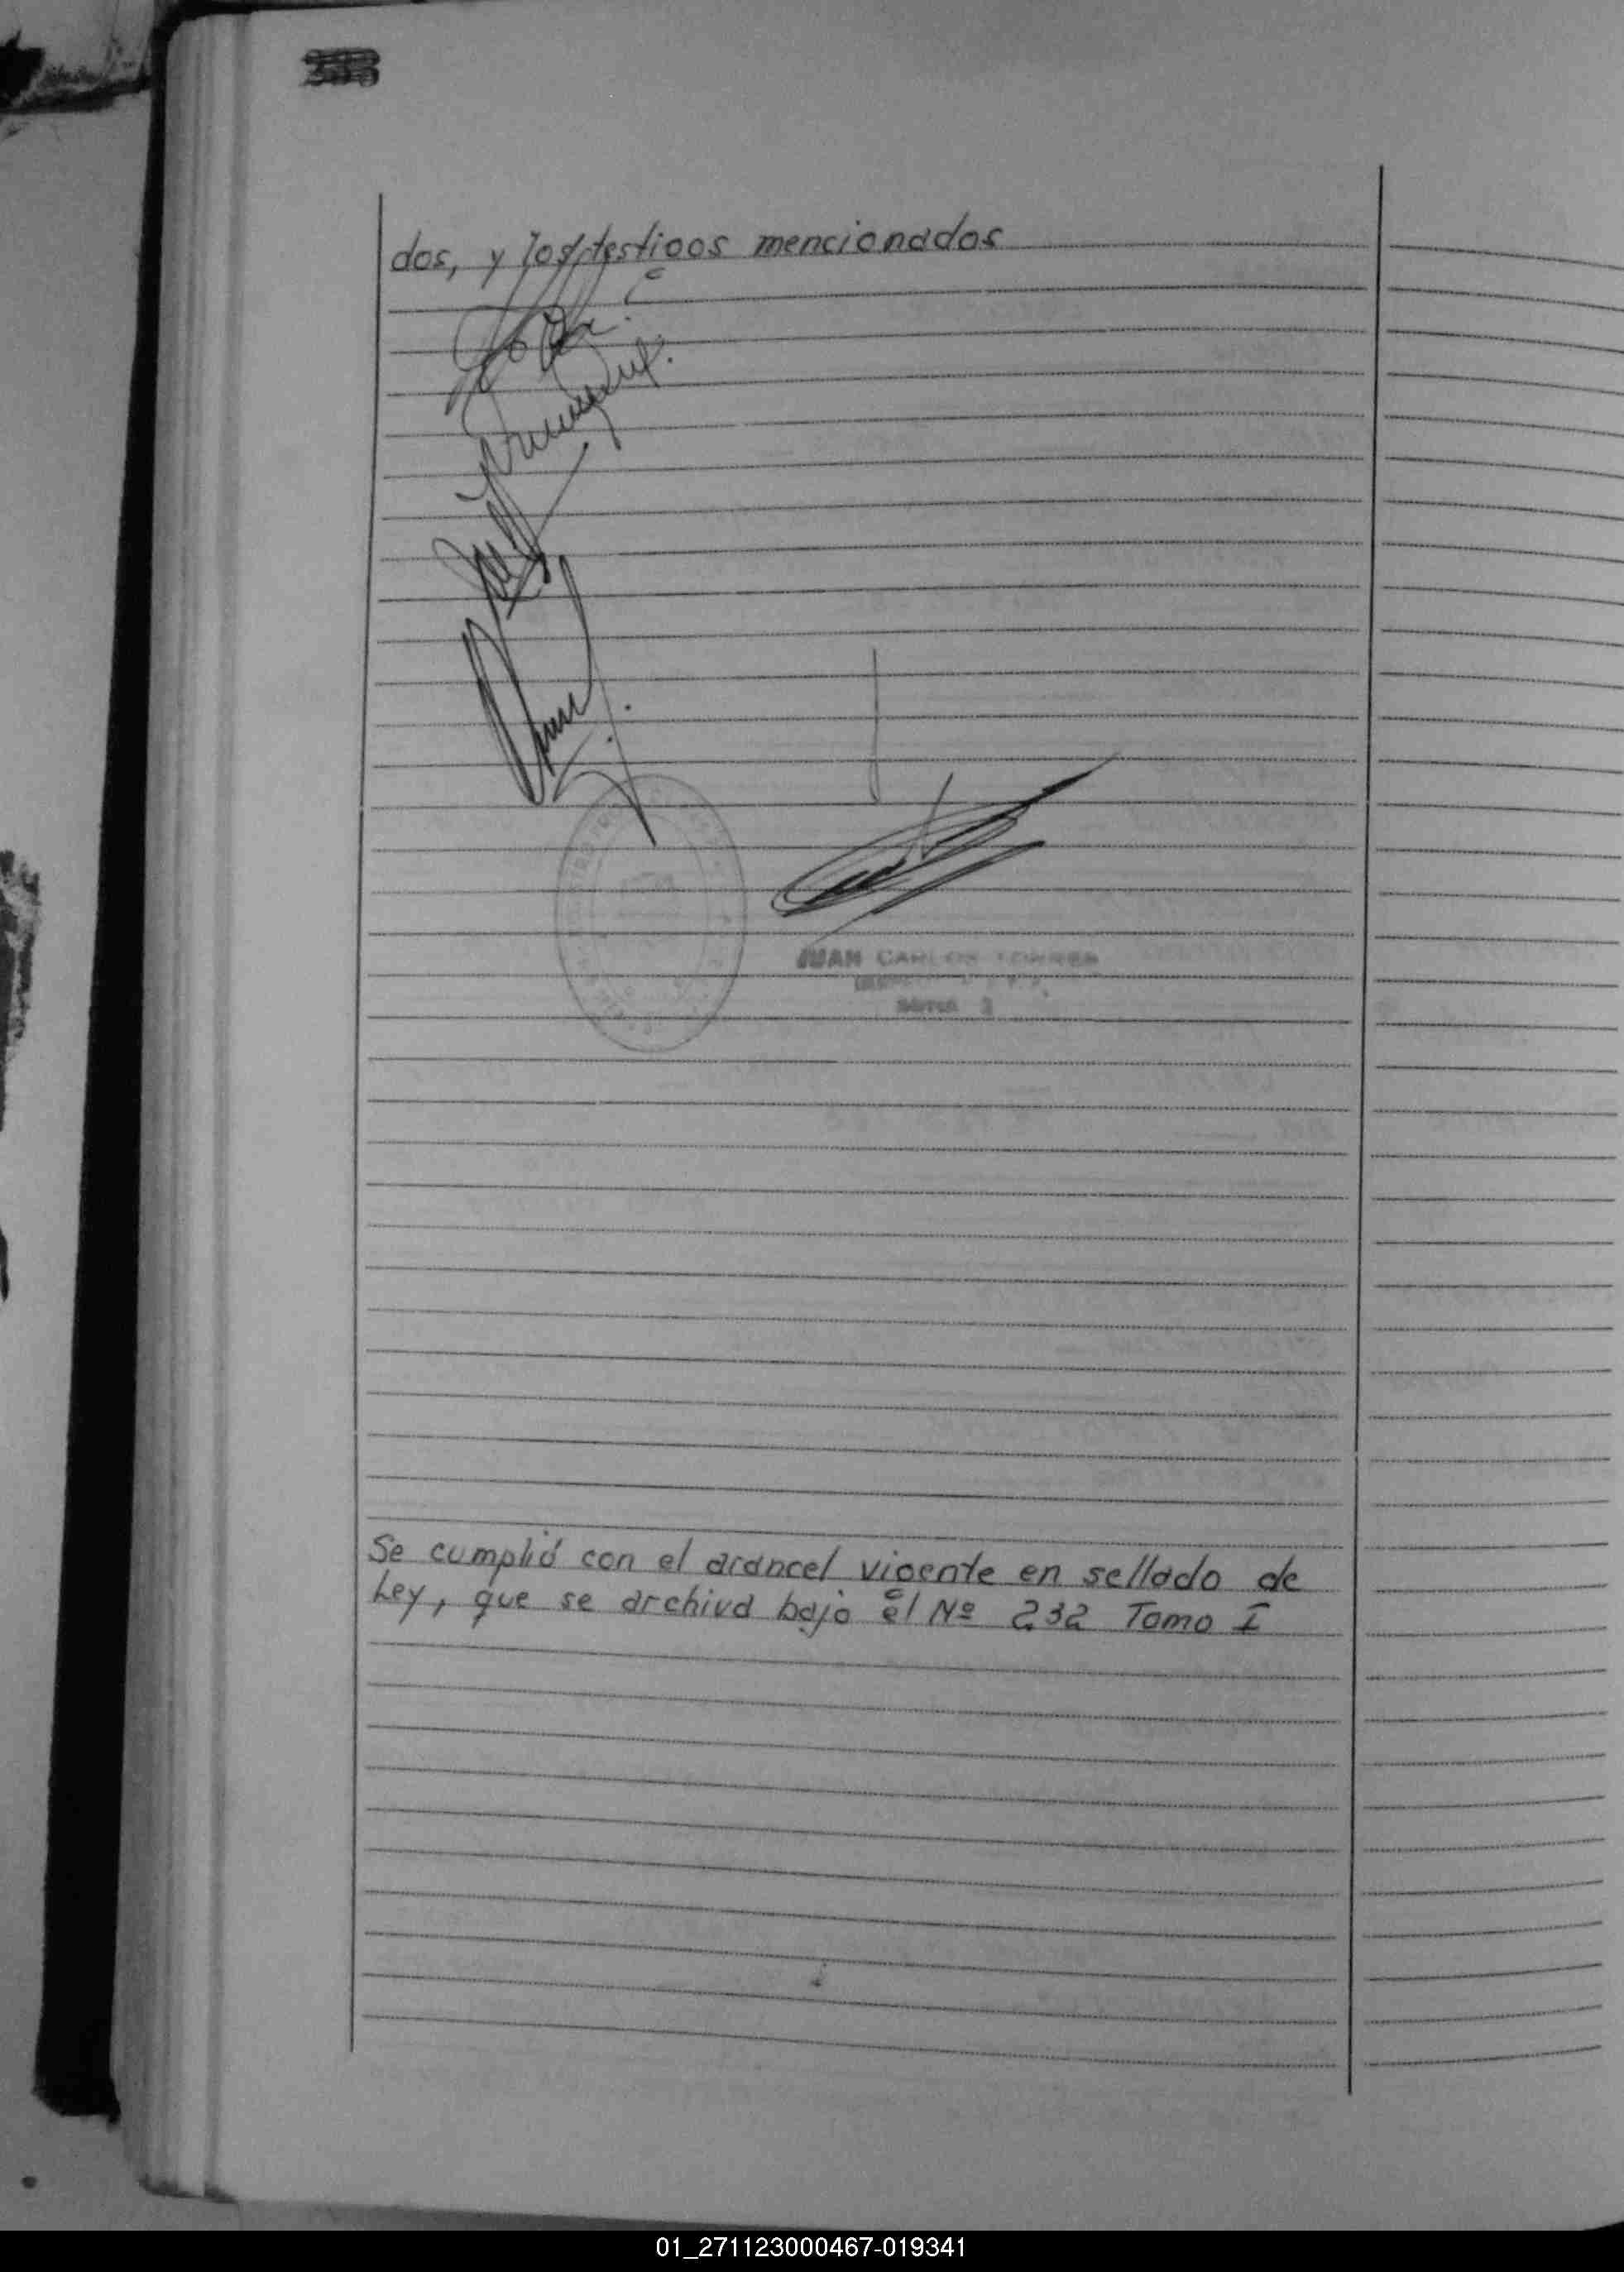 dos, y los testigos mencionados
JUAN CARLOS TORRES
Se cumplió con el arancel vigente en sellado de
Ley, que se archiva bajo el Nº 232 Tomo I
01_271123000467-019341